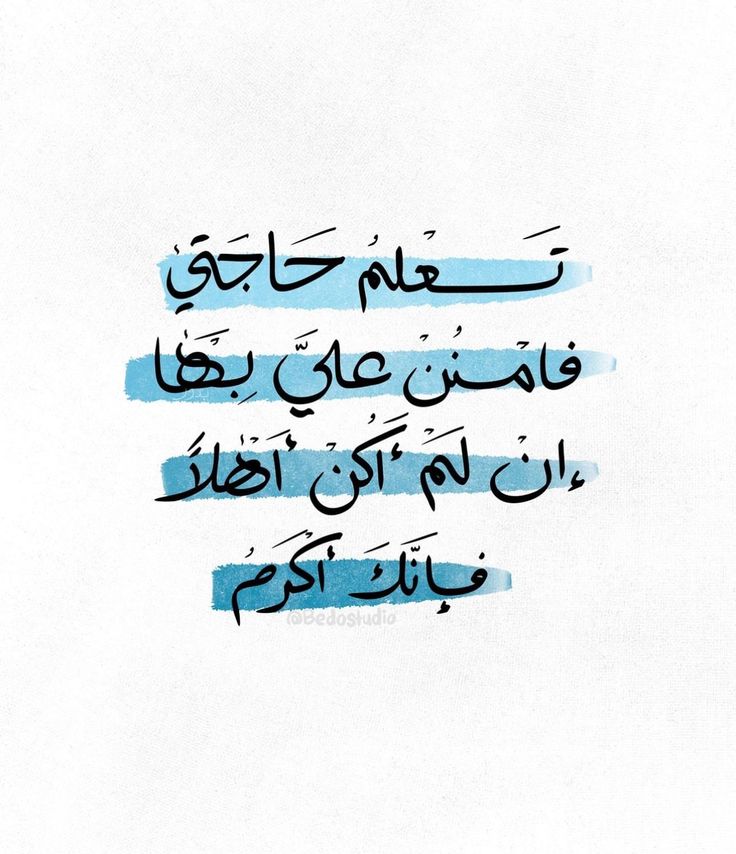 تَعْلمُ حَاجَتيٖ
فامْنُنْ عليَّ بِهَا
إنْ لَمْ أَكُنْ أَهْلاً
فإنَّكَ أكْرَمُ
@Bedostudio